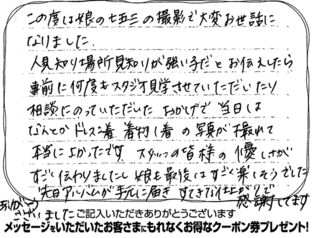 この度は娘の七五三の撮影で大変お世話に
なりました。
人見知り場所見知りが強い子だとお伝えしたら
事前に何度もスタジオ見学させていただいたり
相談にのっていただいた おかげで 当日は
なんとか ドレス1着、着物1着 の写真が撮れて
本当によかったです スタッフの皆様の優しさが
すごく伝わりましたし娘も最後はすごく楽しそうでした
先日アルバムが手元に届き すてきな仕上がりで
感謝してます
ありがとう
ございました
ご記入いただきありがとうございます
メッセージをいただいたお客さまにもれなくお得なクーポン券プレゼント!